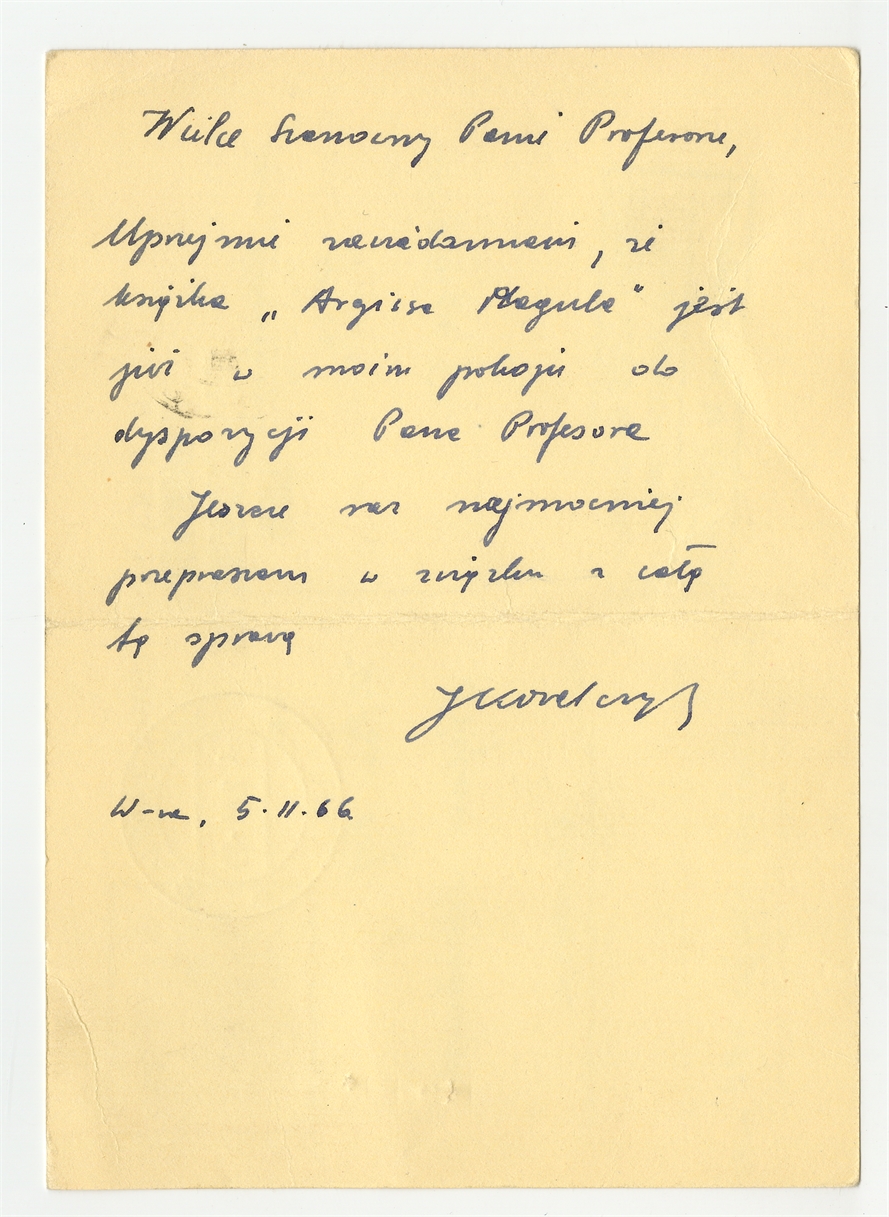 Wielce Szanowny Panie Profesorze,
Uprzejmie zawiadamiam, że
książka „Argiisa Magula" jest
już w moim pokoju do
dyspozycji Pana Profesora
Jeszcze raz najmocniej
przepraszam w związku z całą
tą sprawą
W-wa, 5.II.66